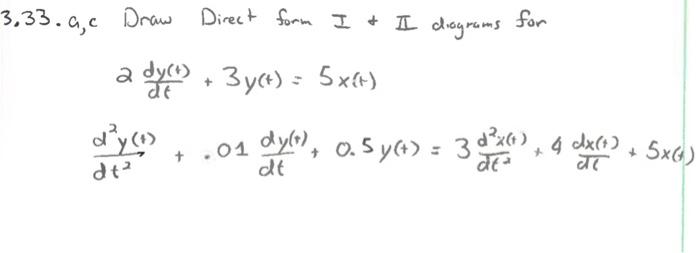 3.33. a,c Draw Direct form I + II diagrams for
2 dy(t)/dt + 3y(t) = 5x(t)
d²y(t)/dt² + .01 dy(t)/dt + 0.5y(t) = 3 d²x(t)/dt² + 4 dx(t)/dt + 5x(t)